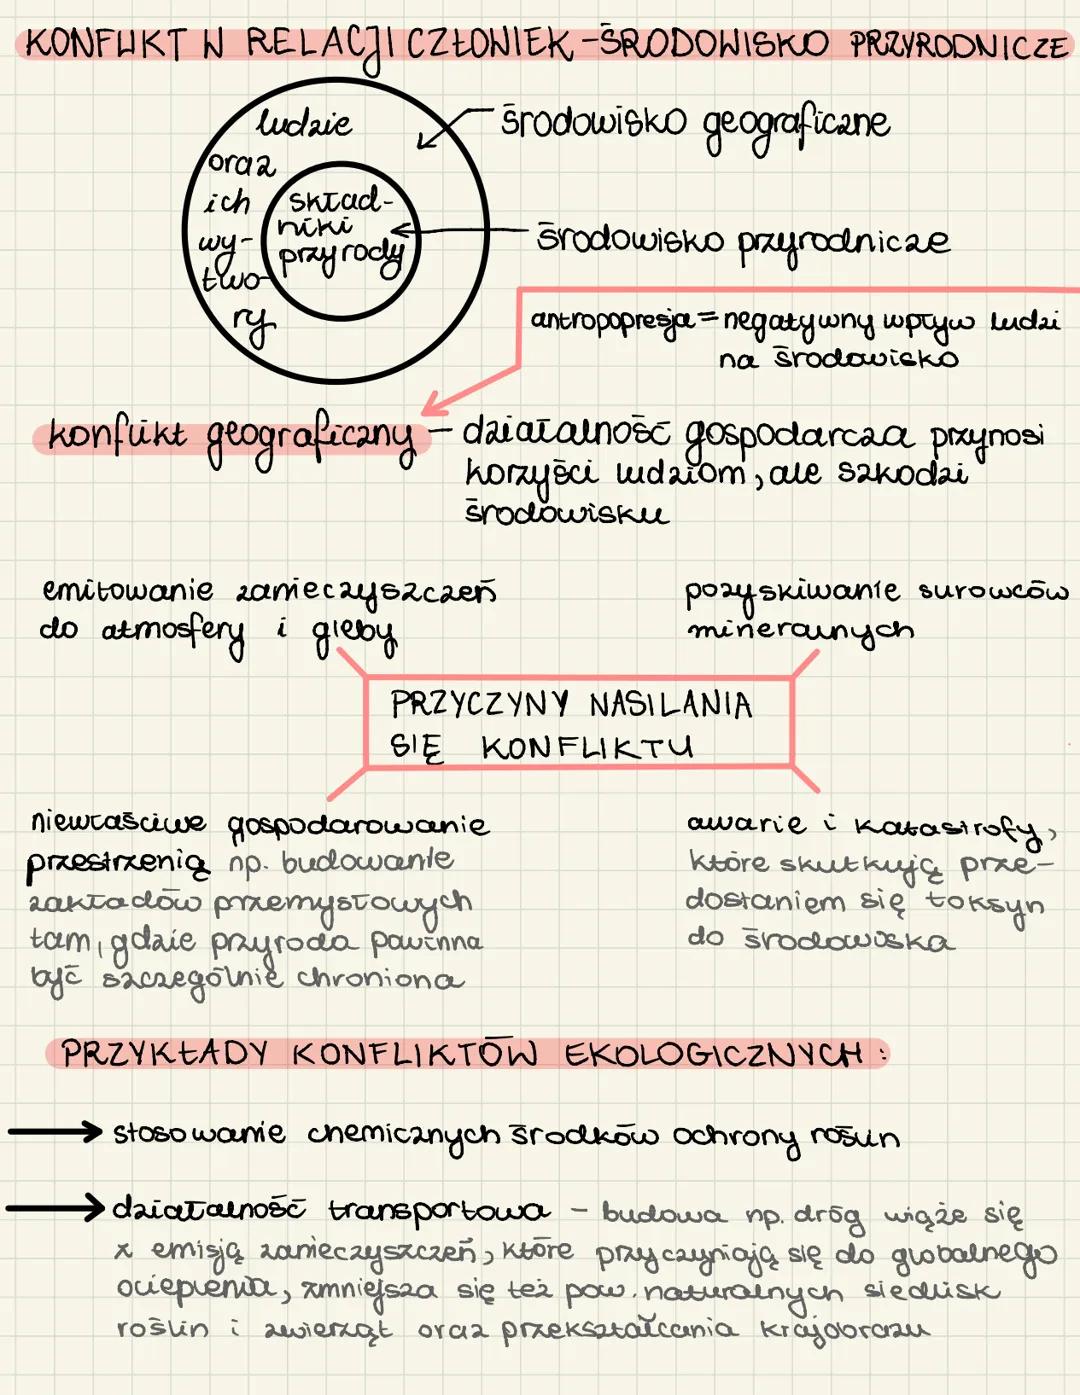 KONFLIKT W RELACJI CZŁOWIEK-ŚRODOWISKO PRZYRODNICZE
ludzie
oraz
ich
wy-
two-
ry
skład-
niki
przyrody
środowisko geograficzne
środowisko przyrodnicze
antropopresja = negatywny wpływ ludzi
na środowisko
konflikt geograficzny - działalność gospodarcza przynosi
korzyści ludziom, ale szkodzi
środowisku
emitowanie zanieczyszczeń
do atmosfery i gleby
pozyskiwanie surowców
mineralnych
PRZYCZYNY NASILANIA
SIĘ KONFLIKTU
niewłaściwe gospodarowanie
przestrzenią np. budowanie
zakładów przemysłowych
tam, gdzie przyroda powinna
być szczególnie chroniona
awarie i katastrofy,
które skutkują prze-
dostaniem się toksyn
do środowiska
PRZYKŁADY KONFLIKTÓW EKOLOGICZNYCH:
→ stosowanie chemicznych środków ochrony roślin
→ działalność transportowa - budowa np. dróg wiąże się
z emisją zanieczyszczeń, które przyczyniają się do globalnego
ocieplenia, zmniejsza się też pow. naturalnych siedlisk
roślin i zwierząt oraz przekształcania krajobrazu